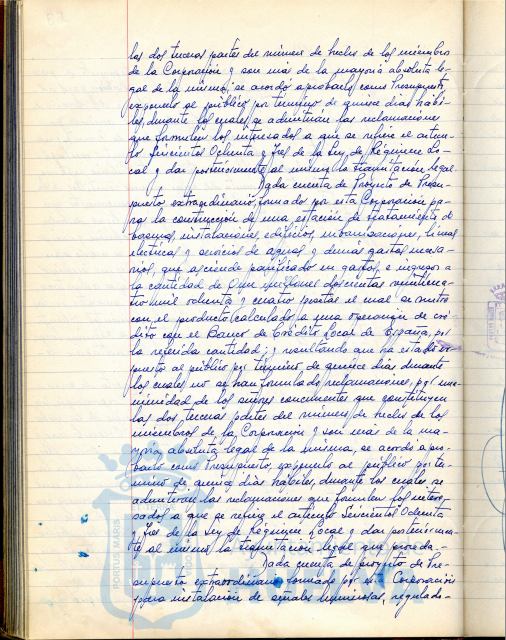 las dos terceras partes del número de hecho de los miembros
de la Corporación y son más de la mayoría absoluta le-
gal de la misma, se acordó aprobarlo como Presupuesto,
exponerlo al público por término de quince días hábi-
les, durante los cuales se admitirán las reclamaciones
que formulen los interesados a que se refiere el artícu-
lo Seiscientos Ochenta y Tres de la Ley de Régimen Lo-
cal y dar posteriormente al mismo la tramitación legal.
Dada cuenta de Proyecto de Presu-
puesto extraordinario, formado por esta Corporación pa-
ra la construcción de una estación de tratamiento de
basuras, instalaciones, edificios, urbanizaciones, líneas
eléctricas y servicios de aguas y demás gastos
que asciende en gastos e ingresos a
la cantidad de millones doscientas
mil ochenta y cuatro pesetas el cual se nutre
con el producto calculado a una operación de cré-
dito con el Banco de Crédito Local de España, por
la referida cantidad; y resultando que ha estado ex-
puesto al público por término de quince días durante
los cuales no se han formulado reclamaciones, por una-
nimidad de los señores concurrentes que constituyen
las dos terceras partes del número de hecho de los
miembros de la Corporación y son más de la ma-
yoría absoluta legal de la misma, se acordó apro-
barlo como Presupuesto, exponerlo al público por tér-
mino de quince días hábiles, durante los cuales se
admitirán las reclamaciones que formulen los intere-
sados a que se refiere el artículo Seiscientos Ochenta
y Tres de la Ley de Régimen Local y dar posteriormen-
te al mismo la tramitación legal que proceda.-
Dada cuenta de proyecto de Pre-
supuesto extraordinario formado por esta Corporación
para instalación de señales luminosas, regulado-
PORTUS MARIS